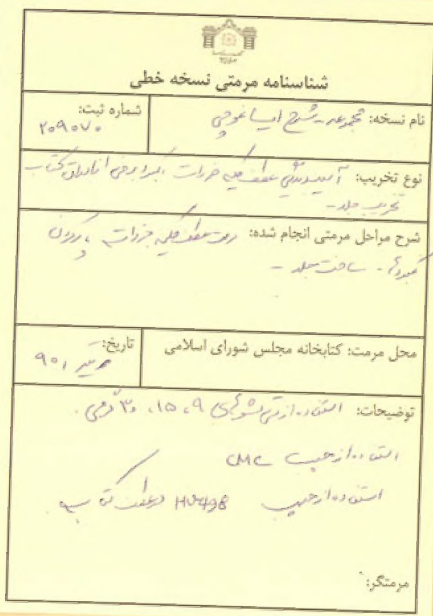 شناسنامه مرمتی نسخه خطی
نام نسخه: مجموعه - شرح ایساغوجی
شماره ثبت: ۲۰۹۰۷۰
نوع تخریب: آسیب دیدگی عطف کلیه جزوات
تخریب جلد -
شرح مراحل مرمتی انجام شده: مرمت عطف کلیه جزوات
کمبودها - ساخت جلد -
محل مرمت: کتابخانه مجلس شورای اسلامی
تاریخ:
توضیحات: استفاده از تیشوهای ۹، ۱۵، ۳۰ گرمی.
استفاده از چسب CMC
استفاده از چسب H498 در عطف کتاب
مرمتگر: